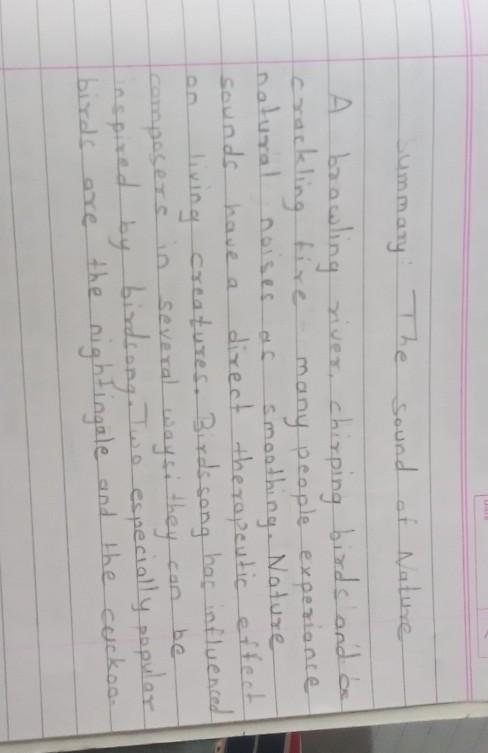 Summary: The sound of Nature
A browling river, chirping birds and a
crackling fire - many people experiance
natural noises as smoothing. Nature
sounds have a direct therapeutic effect
on living creatures. Birdssong has influenced
composers in several ways: they can be
inspired by birdsong. Two especially popular
birds are the nightingale and the cuckoo.